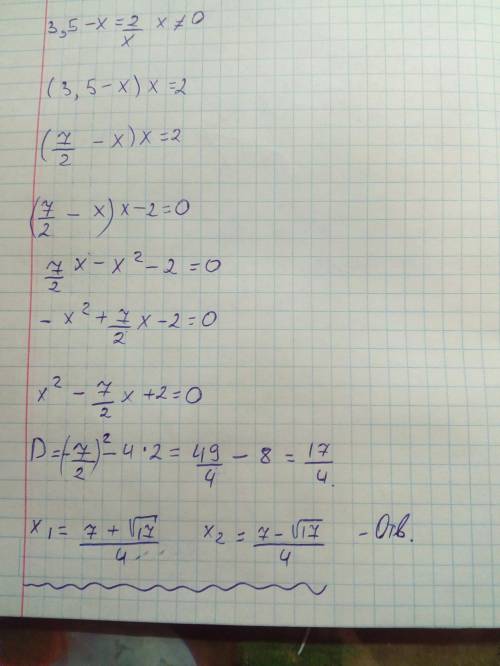 3,5-x=2/x x≠0
(3,5-x)x=2
(7/2 - x)x=2
(7/2 - x)x-2=0
7/2 x - x² - 2 = 0
- x² + 7/2 x - 2 = 0
x² - 7/2 x + 2 = 0
D = (-7/2)² - 4·2 = 49/4 - 8 = 17/4.
x₁ = (7+√17)/4 x₂ = (7-√17)/4 - Отв.